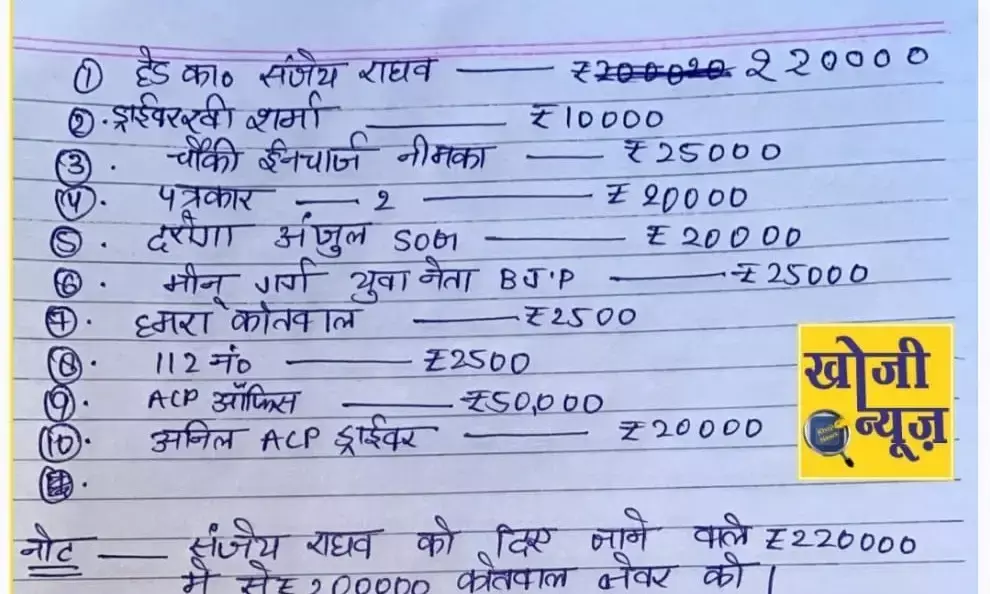 ① हेड का० संजय राघव — ₹200020 220000
②. ड्राईवर रवी शर्मा — ₹10000
③. चौंकी ईनचार्ज नीमका — ₹25000
④. पत्रकार — 2 — ₹20000
⑤. दरोगा अंजुल SOG — ₹20000
⑥. मीनू गर्ग युवा नेता BJ.P — ₹25000
⑦. हमरा कोतवाल — ₹2500
⑧. 112 नं० — ₹2500
⑨. ACP ऑफिस — ₹50,000
⑩. अनिल ACP ड्राईवर — ₹20000
नोट — संजय राघव को दिए जाने वाले ₹220000
मे से ₹200000 कोतवाल जेवर को।
खोजी
न्यूज़